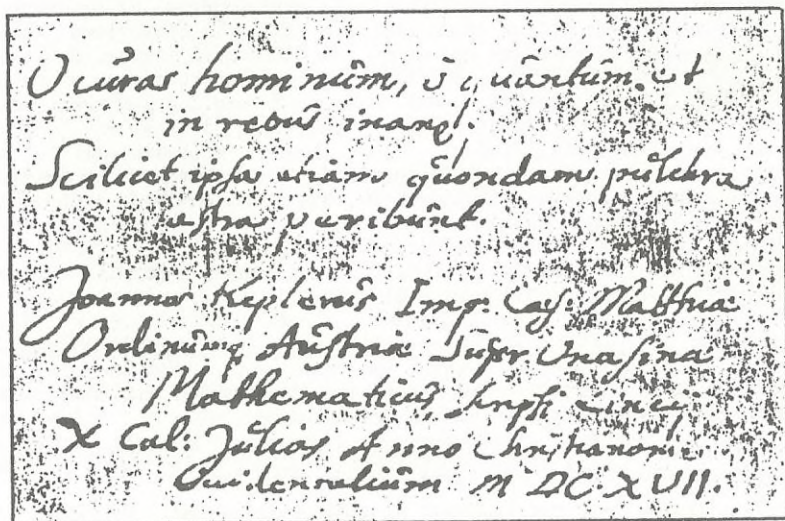 O curas hominum, ô quantum est
in rebus inane!
Scilicet ipsa etiam quondam pulchra
astra peribunt.
Joannes Keplerus Imp. Caes. Matthiae
Ordinumq Austriae Supr Anasinae
Mathematicus, scripsi
X Cal: Julias Anno Christianorum
Occidentalium M DC XVII.